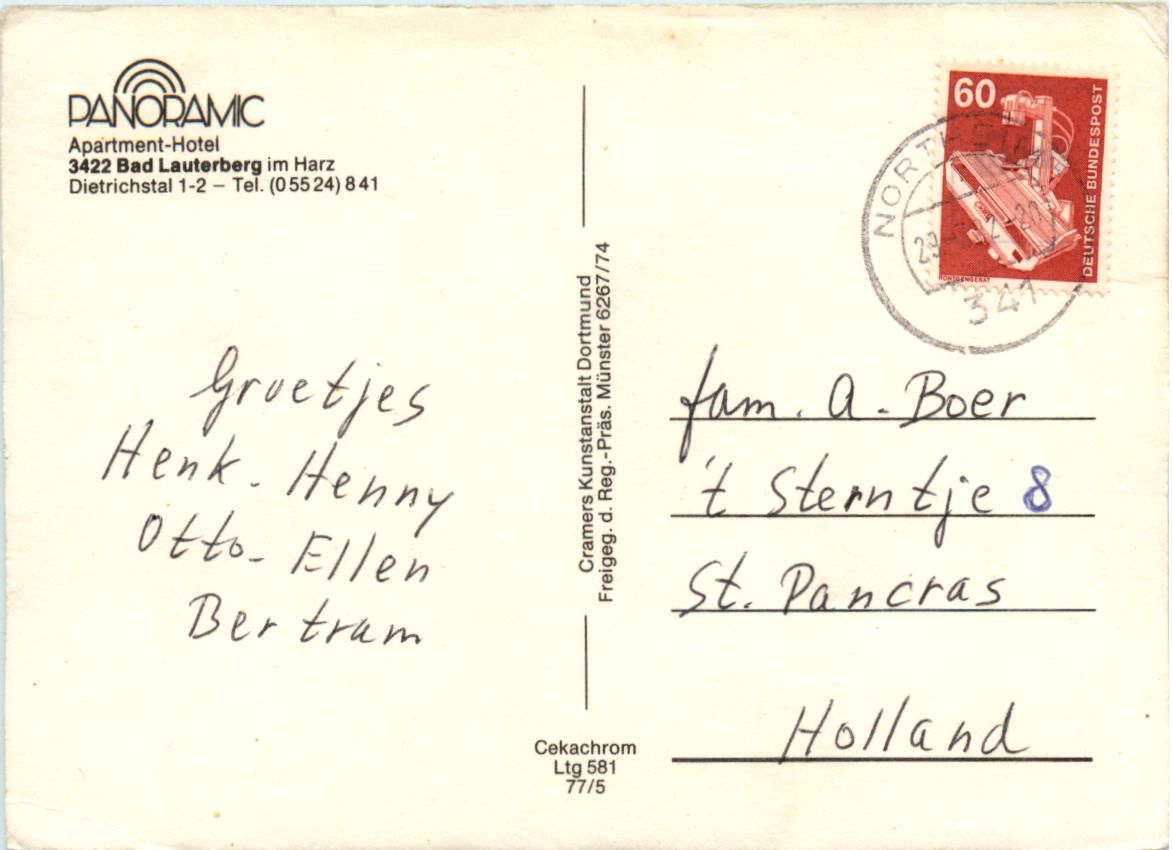 PANORAMIC
Apartment-Hotel
3422 Bad Lauterberg im Harz
Dietrichstal 1-2 – Tel. (05524) 841
Groetjes
Henk - Henny
Otto - Ellen
Bertram
Cramers Kunstanstalt Dortmund
Freigeg. d. Reg.-Präs. Münster 6267/74
Cekachrom
Ltg 581
77/5
60
DEUTSCHE BUNDESPOST
RÖNTGENGERÄT
341
fam. A. Boer
't Sterntje 8
St. Pancras
Holland